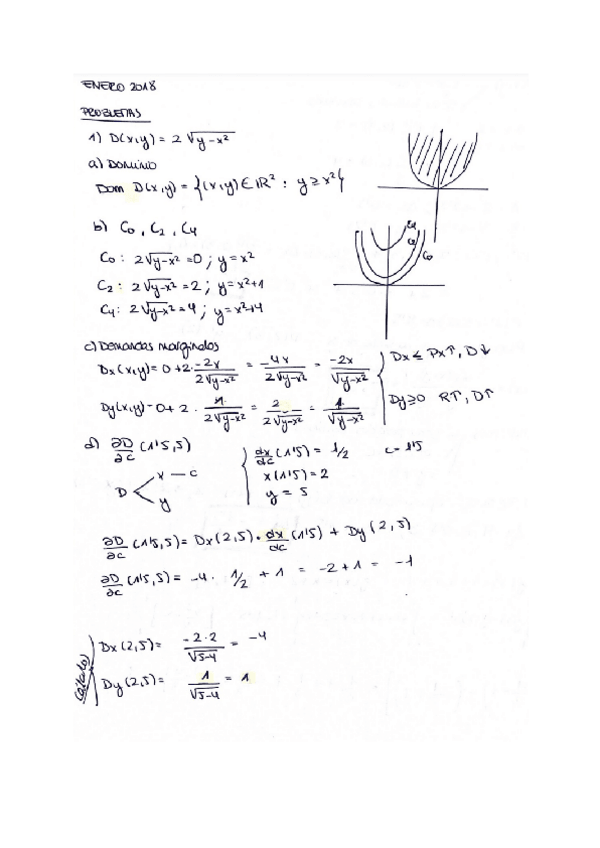 ENERO 2018
PROBLEMAS
1) D(x,y) = 2 √(y-x²)
a) DOMINIO
Dom D(x,y) = {(x,y) ∈ ℝ² : y ≥ x²}
b) C₀, C₂, C₄
C₀ : 2√(y-x²) = 0 ; y = x²
C₂ : 2√(y-x²) = 2 ; y = x²+1
C₄ : 2√(y-x²) = 4 ; y = x²+4
C₄
C₂
C₀
c) Demandas marginales
Dx(x,y) = 0 + 2 · -2x / 2√(y-x²) = -4x / 2√(y-x²) = -2x / √(y-x²)
Dx ≤ Px↑, D↓
Dy(x,y) = 0 + 2 · 1 / 2√(y-x²) = 2 / 2√(y-x²) = 1 / √(y-x²)
Dy ≥ 0 R↑, D↑
d) ∂D/∂c (1'5,5)
dx/dc (1'5) = 1/2 c = 1'5
x(1'5) = 2
y = 5
D x — c
y
∂D/∂c (1'5,5) = Dx(2,5) · dx/dc (1'5) + Dy(2,5)
∂D/∂c (1'5,5) = -4 · 1/2 + 1 = -2 + 1 = -1
Dx(2,5) = -2·2 / √(5-4) = -4
Dy(2,5) = 1 / √(5-4) = 1